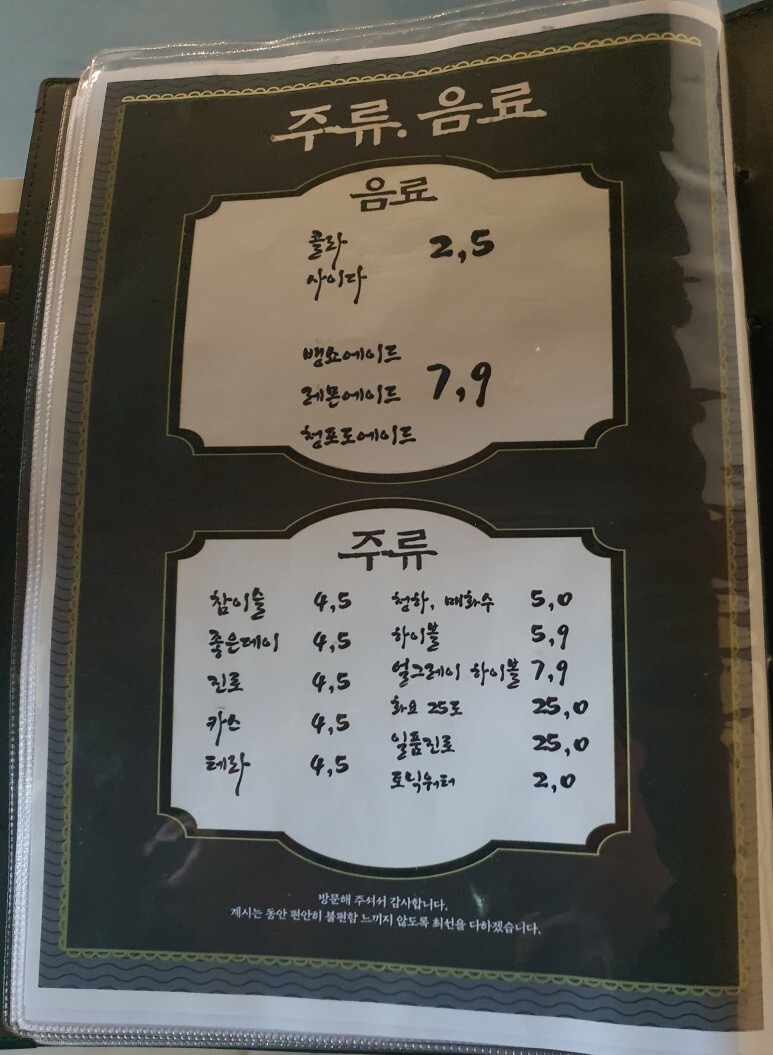 주류.음료
음료
콜라 2,5
사이다
뱅쇼에이드
레몬에이드 7,9
청포도에이드
주류
참이슬 4,5
좋은데이 4,5
진로 4,5
카스 4,5
테라 4,5
청하, 매화수 5,0
하이볼 5,9
얼그레이 하이볼 7,9
화요 25도 25,0
일품진로 25,0
토닉워터 2,0
방문해 주셔서 감사합니다.
계시는 동안 편안히 불편함 느끼지 않도록 최선을 다하겠습니다.